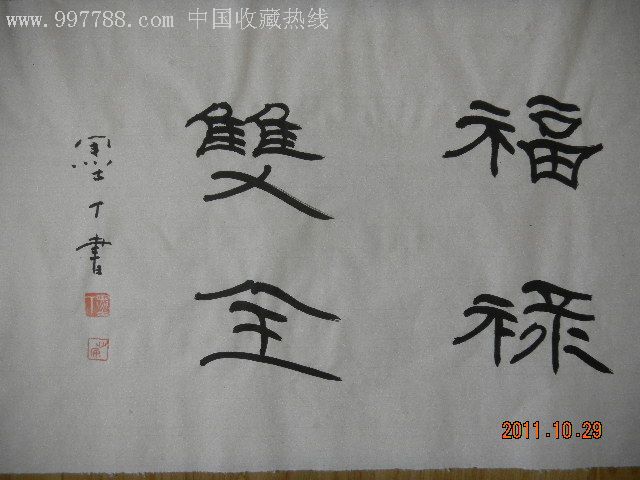 www.997788.com 中国收藏热线
福禄
雙全
丁書
2011.10.29